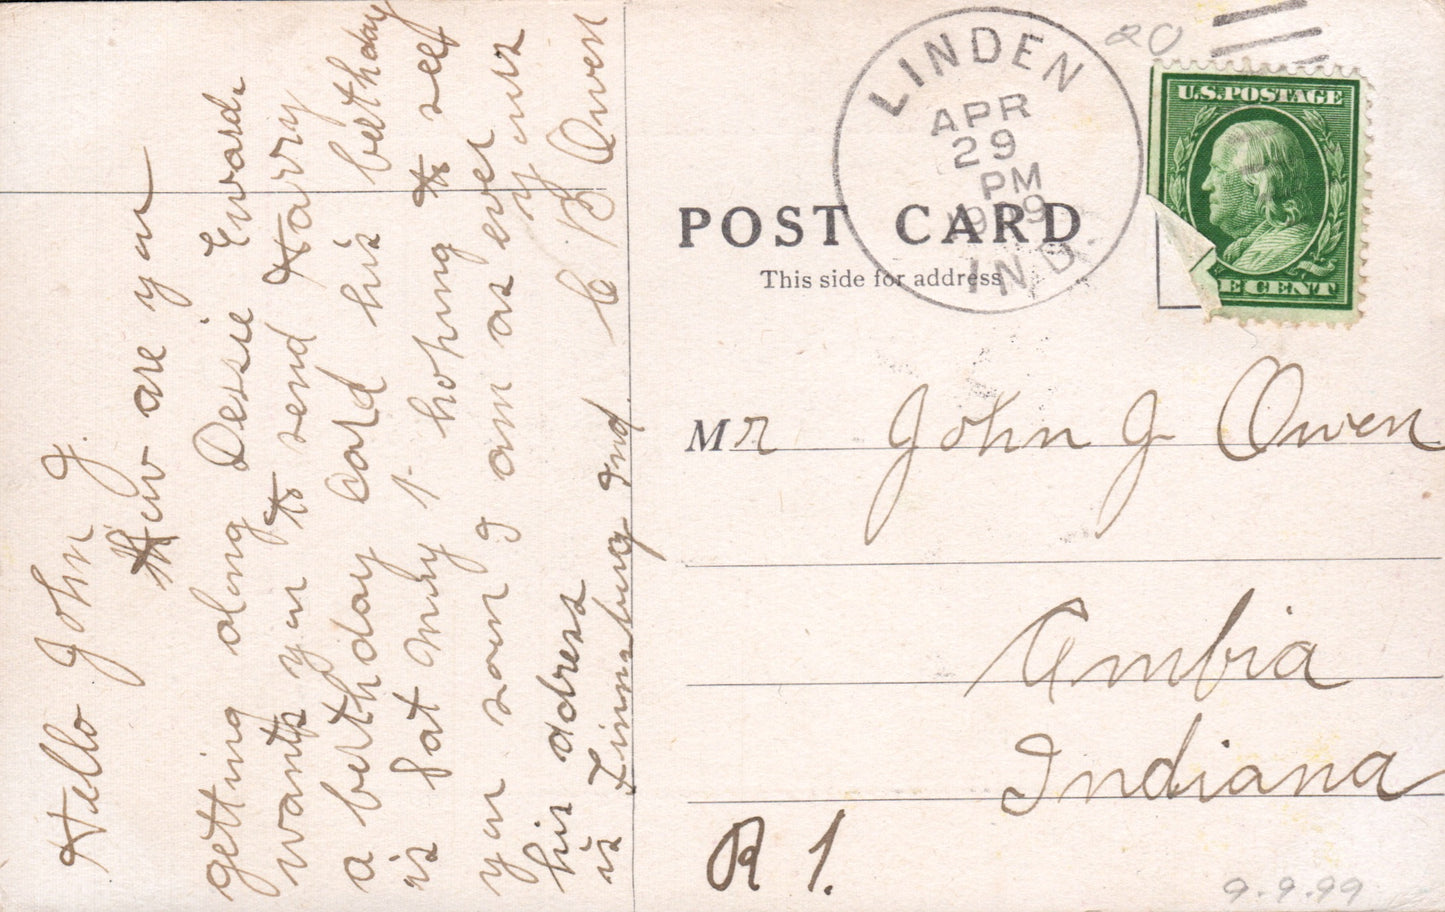 Hello John J.
How are you
getting along Dessie Ewards
wants you to send Harry
a birthday card his birthday
is Sat May 1. hoping to see
you soon I am as ever
yours
C B Owen
his adress
is Linnsburg Ind.
LINDEN
APR
29
PM
1909
IND.
20
U.S.POSTAGE
E CENT
POST CARD
This side for address
Mr John J Owen
Ambia
Indiana
R 1.
9.9.99